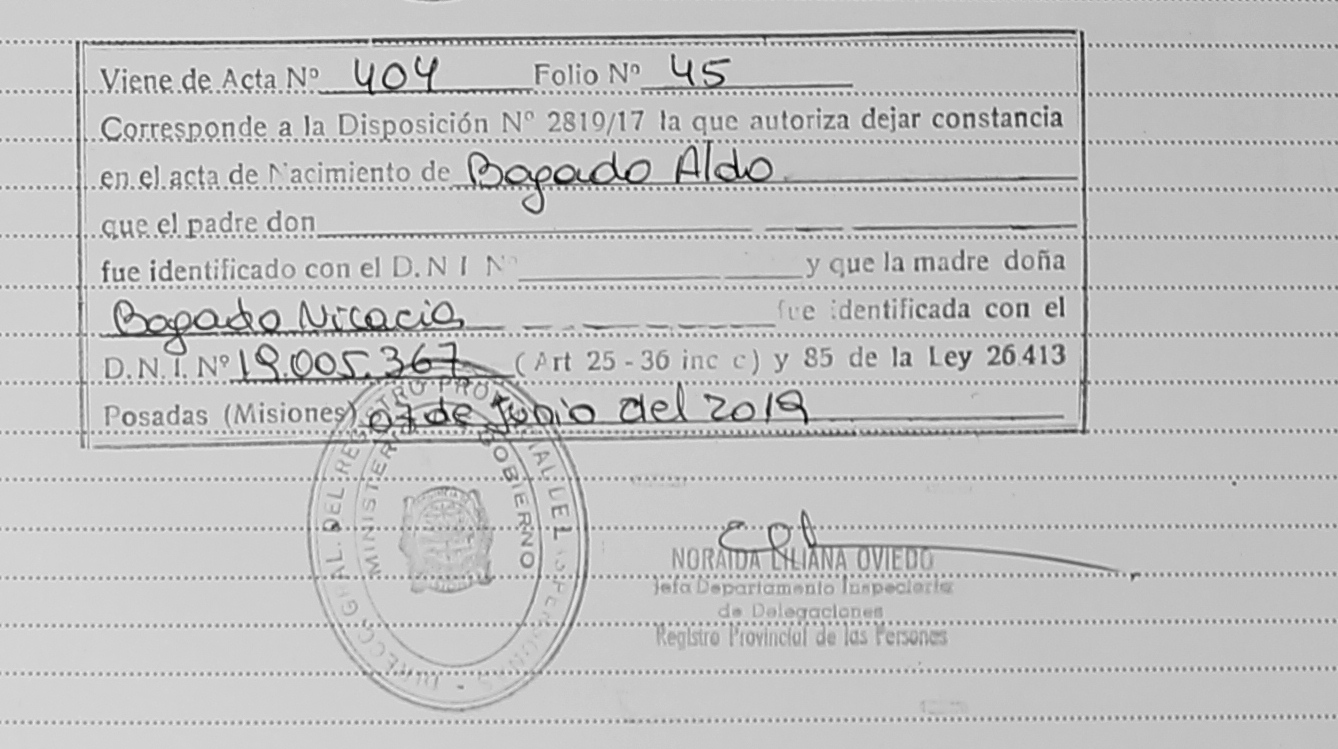 Viene de Acta Nº 404 Folio Nº 45
Corresponde a la Disposición Nº 2819/17 la que autoriza dejar constancia
en el acta de Nacimiento de Bogado Aldo
que el padre don
fue identificado con el D.N I Nº y que la madre doña
Bogado Nicacia fue identificada con el
D.N.I. Nº 19.005.367 (Art 25 - 36 inc c) y 85 de la Ley 26.413
Posadas (Misiones) 07 de Junio del 2019
MINISTERIO GOBIERNO
NORAIDA LILIANA OVIEDO
Jefa Departamento Inspectoria
de Delegaciones
Registro Provincial de las Personas